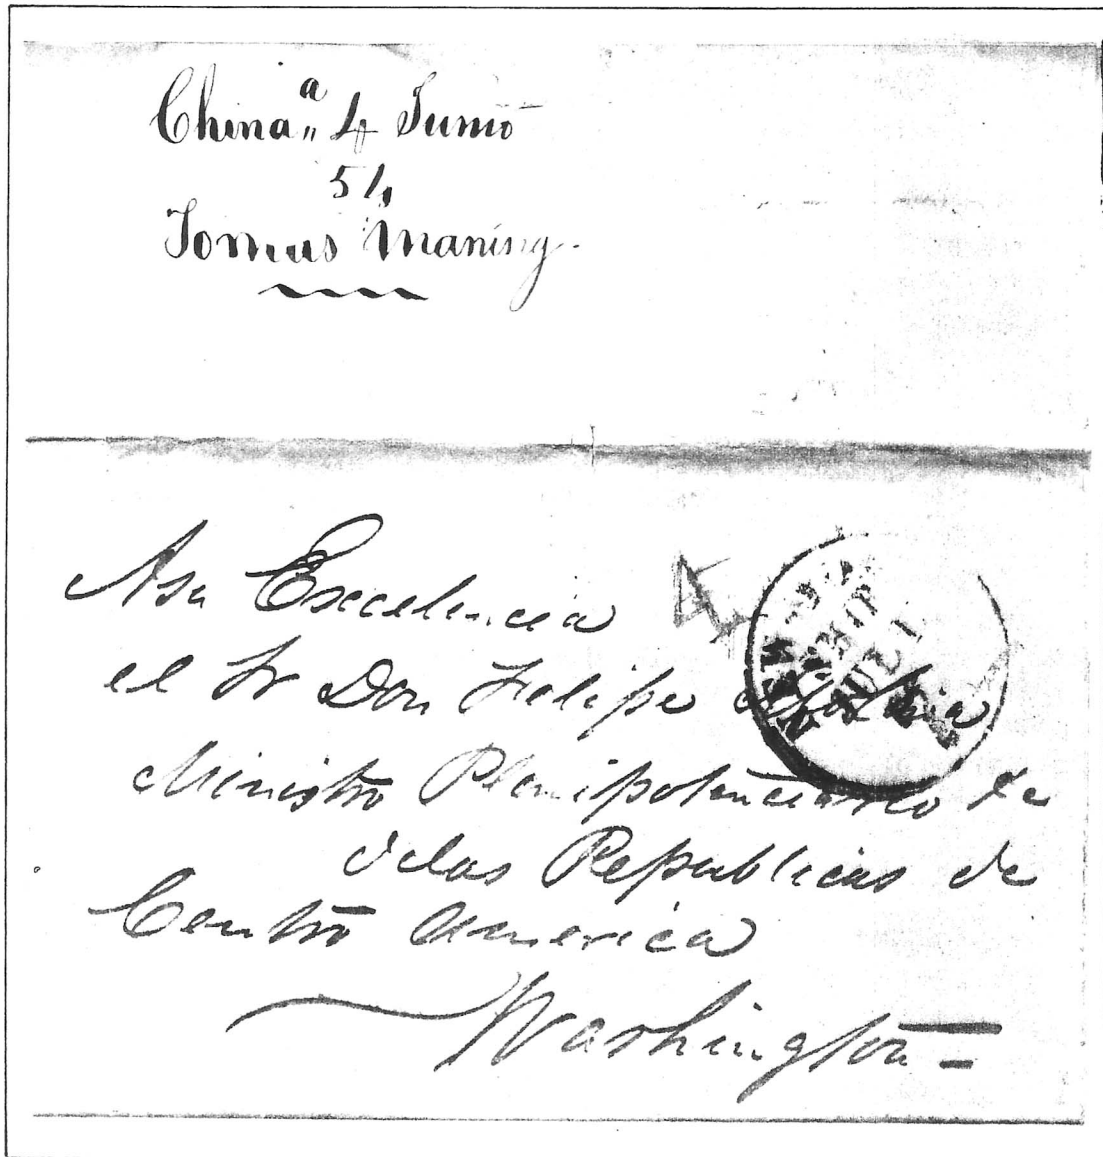 Chinaª 4 Junio
54
Tomas Maning
A su Excelencia
el Sr Don Felipe Molina
Ministro Plenipotenciario de
delas Republicas de
Centro America
Washington
4
NEW
SHIP
JUL 1